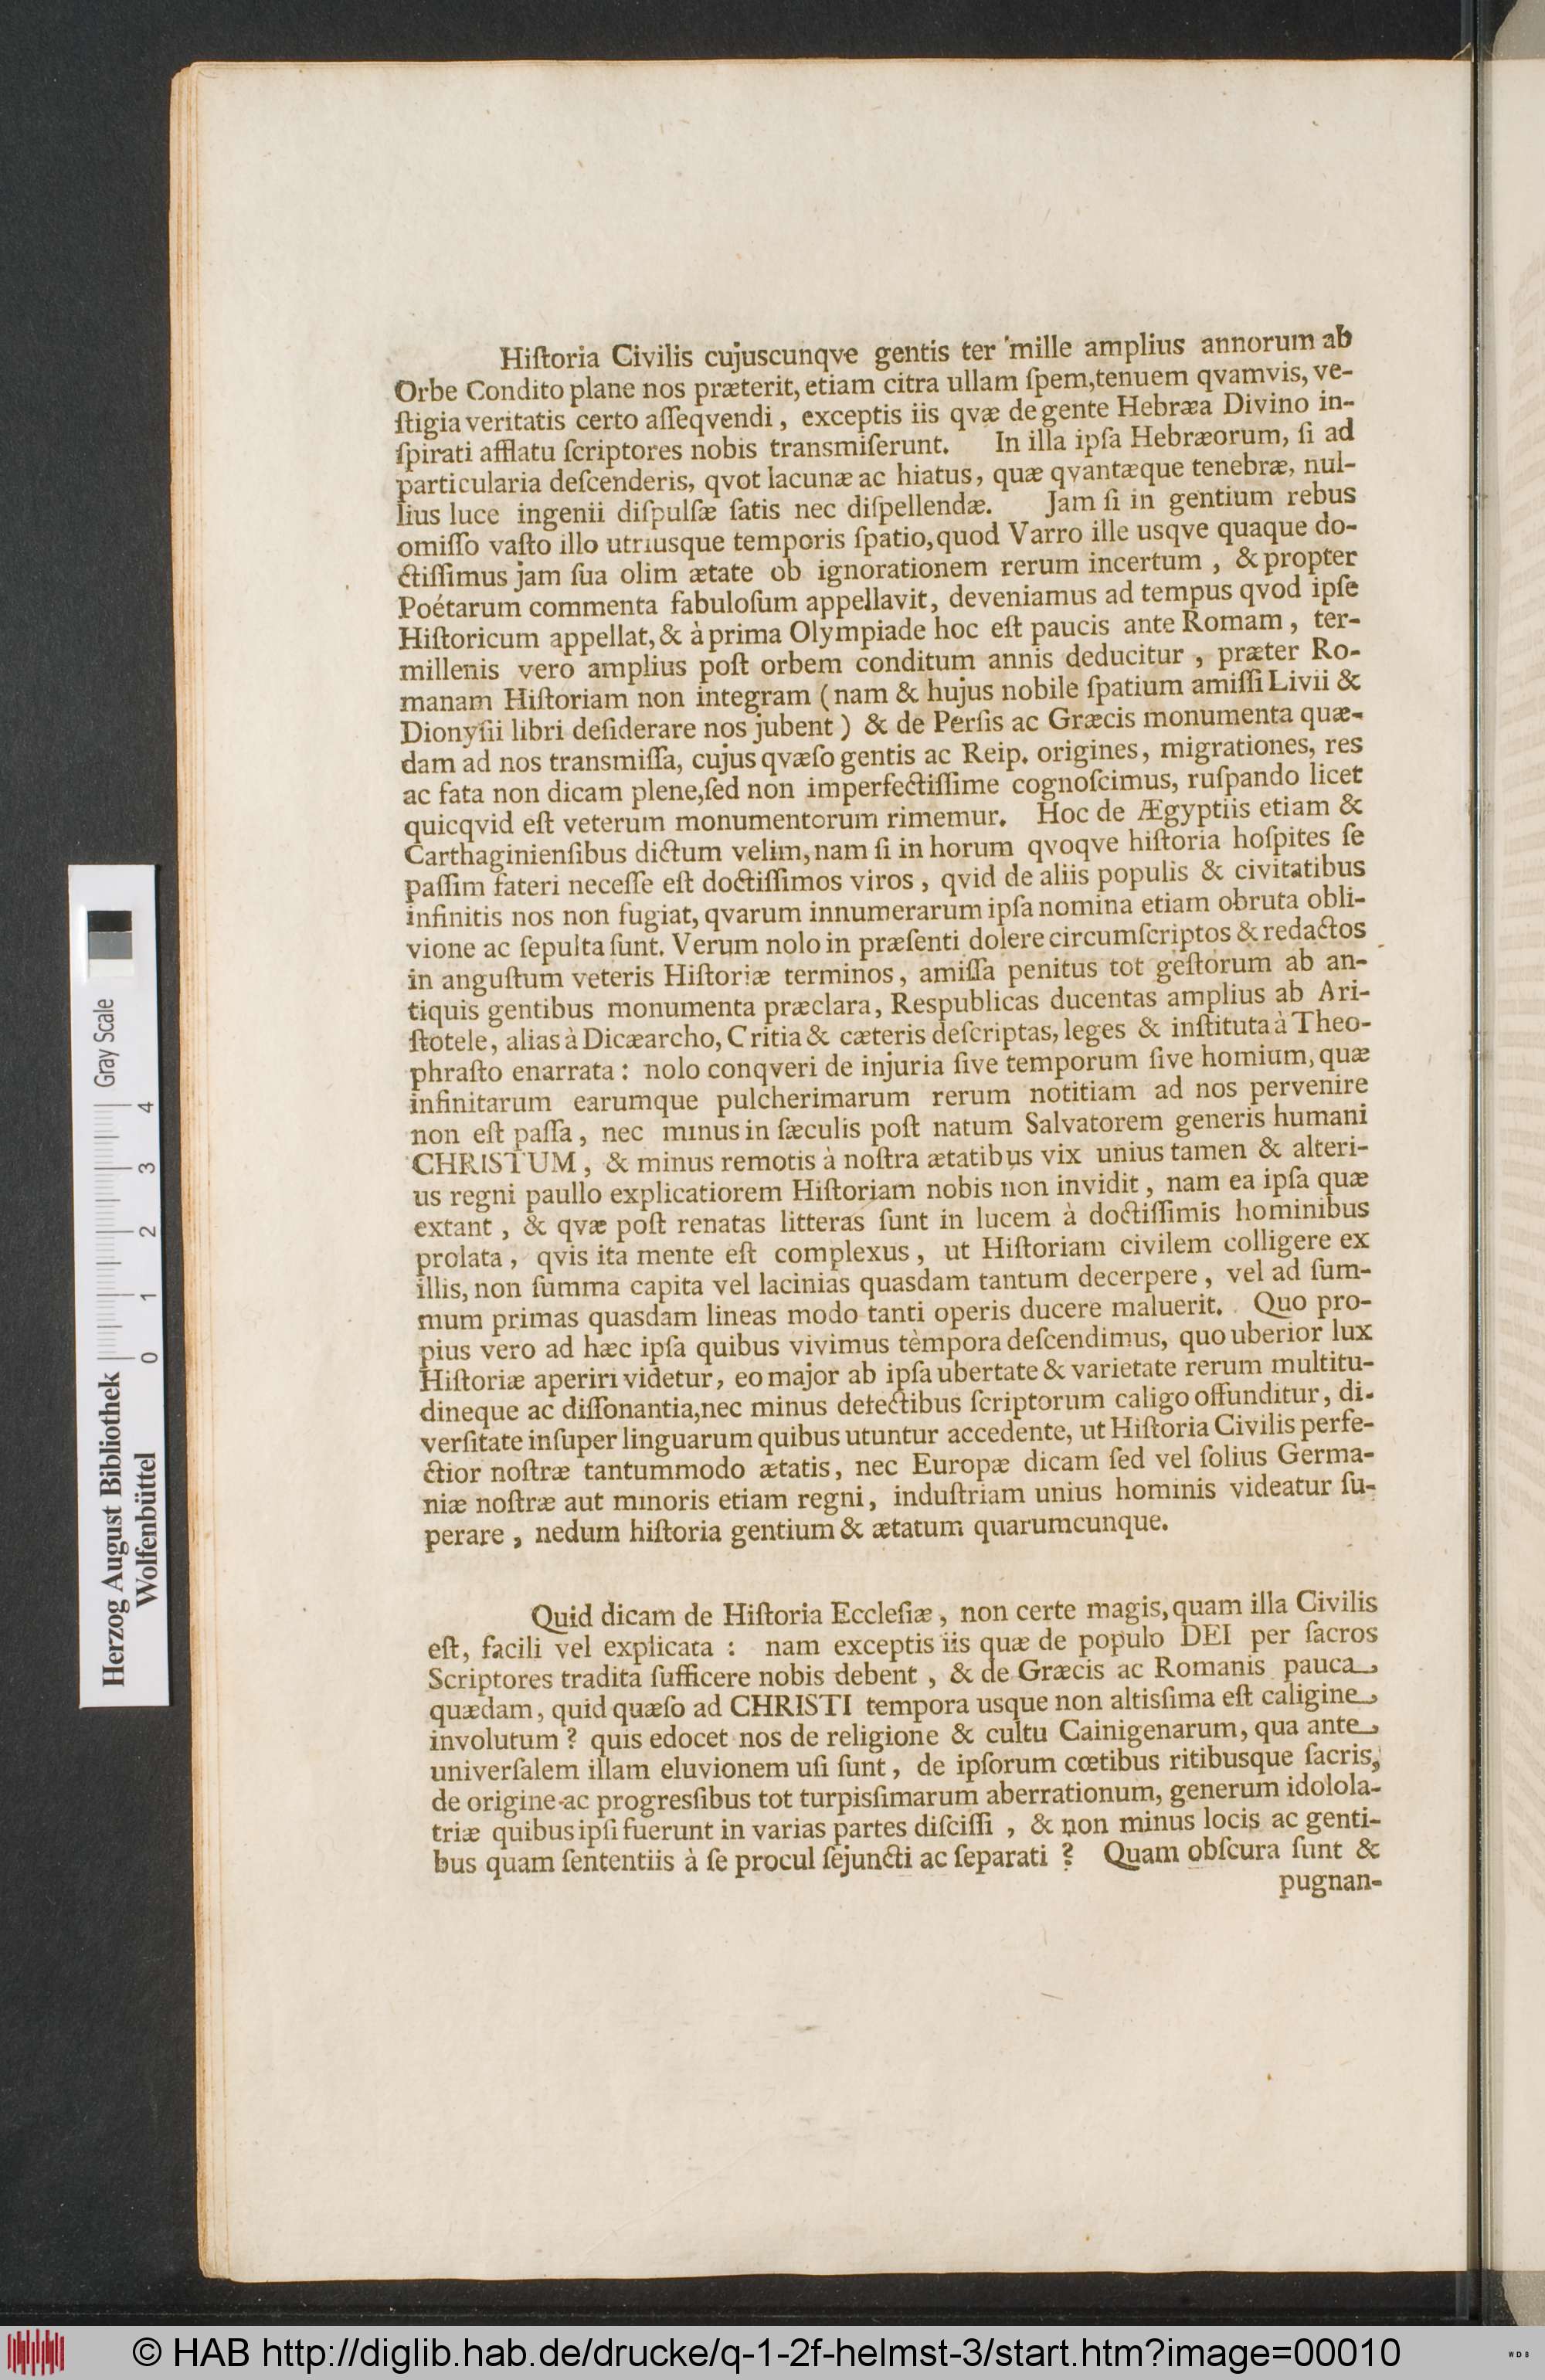 Hiſtoria Civilis cujuscunqve gentis ter mille amplius annorum ab
Orbe Condito plane nos præterit, etiam citra ullam ſpem, tenuem qvamvis, ve-
ſtigia veritatis certo aſſeqvendi, exceptis iis qvæ de gente Hebræa Divino in-
ſpirati afflatu ſcriptores nobis transmiſerunt. In illa ipſa Hebræorum, ſi ad
particularia deſcenderis, qvot lacunæ ac hiatus, quæ qvantæque tenebræ, nul-
lius luce ingenii diſpulſæ ſatis nec diſpellendæ. Jam ſi in gentium rebus
omiſſo vaſto illo utriusque temporis ſpatio, quod Varro ille usqve quaque do-
ctiſſimus jam ſua olim ætate ob ignorationem rerum incertum, & propter
Poétarum commenta fabuloſum appellavit, deveniamus ad tempus qvod ipſe
Hiſtoricum appellat, & à prima Olympiade hoc eſt paucis ante Romam, ter-
millenis vero amplius poſt orbem conditum annis deducitur, præter Ro-
manam Hiſtoriam non integram (nam & hujus nobile ſpatium amiſſi Livii &
Dionyſii libri deſiderare nos jubent) & de Perſis ac Græcis monumenta quæ-
dam ad nos transmiſſa, cujus qvæſo gentis ac Reip. origines, migrationes, res
ac fata non dicam plene, ſed non imperfectiſſime cognoſcimus, ruſpando licet
quicqvid eſt veterum monumentorum rimemur. Hoc de Ægyptiis etiam &
Carthaginienſibus dictum velim, nam ſi in horum qvoqve hiſtoria hoſpites ſe
paſſim fateri neceſſe eſt doctiſſimos viros, qvid de aliis populis & civitatibus
infinitis nos non fugiat, qvarum innumerarum ipſa nomina etiam obruta obli-
vione ac ſepulta ſunt. Verum nolo in præſenti dolere circumſcriptos & redactos
in anguſtum veteris Hiſtoriæ terminos, amiſſa penitus tot geſtorum ab an-
tiquis gentibus monumenta præclara, Respublicas ducentas amplius ab Ari-
ſtotele, alias à Dicæarcho, Critia & cæteris deſcriptas, leges & inſtituta à Theo-
phraſto enarrata: nolo conqveri de injuria ſive temporum ſive homium, quæ
infinitarum earumque pulcherimarum rerum notitiam ad nos pervenire
non eſt paſſa, nec minus in ſæculis poſt natum Salvatorem generis humani
CHRISTUM, & minus remotis à noſtra ætatibus vix unius tamen & alteri-
us regni paullo explicatiorem Hiſtoriam nobis non invidit, nam ea ipſa quæ
extant, & qvæ poſt renatas litteras ſunt in lucem à doctiſſimis hominibus
prolata, qvis ita mente eſt complexus, ut Hiſtoriam civilem colligere ex
illis, non ſumma capita vel lacinias quasdam tantum decerpere, vel ad ſum-
mum primas quasdam lineas modo tanti operis ducere maluerit. Quo pro-
pius vero ad hæc ipſa quibus vivimus tempora deſcendimus, quo uberior lux
Hiſtoriæ aperiri videtur, eo major ab ipſa ubertate & varietate rerum multitu-
dineque ac diſſonantia, nec minus defectibus ſcriptorum caligo offunditur, di-
verſitate inſuper linguarum quibus utuntur accedente, ut Hiſtoria Civilis perfe-
ctior noſtræ tantummodo ætatis, nec Europæ dicam ſed vel ſolius Germa-
niæ noſtræ aut minoris etiam regni, induſtriam unius hominis videatur ſu-
perare, nedum hiſtoria gentium & ætatum quarumcunque.
Quid dicam de Hiſtoria Eccleſiæ, non certe magis, quam illa Civilis
eſt, facili vel explicata: nam exceptis iis quæ de populo DEI per ſacros
Scriptores tradita ſufficere nobis debent, & de Græcis ac Romanis pauca
quædam, quid quæſo ad CHRISTI tempora usque non altisſima eſt caligine
involutum? quis edocet nos de religione & cultu Cainigenarum, qua ante
univerſalem illam eluvionem uſi ſunt, de ipſorum cœtibus ritibusque ſacris,
de origine ac progresſibus tot turpisſimarum aberrationum, generum idolola-
triæ quibus ipſi fuerunt in varias partes diſciſſi, & non minus locis ac genti-
bus quam ſententiis à ſe procul ſejuncti ac ſeparati? Quam obſcura ſunt &
pugnan-
Herzog August Bibliothek
Wolfenbüttel
0 1 2 3 4
Gray Scale
© HAB http://diglib.hab.de/drucke/q-1-2f-helmst-3/start.htm?image=00010
WDB